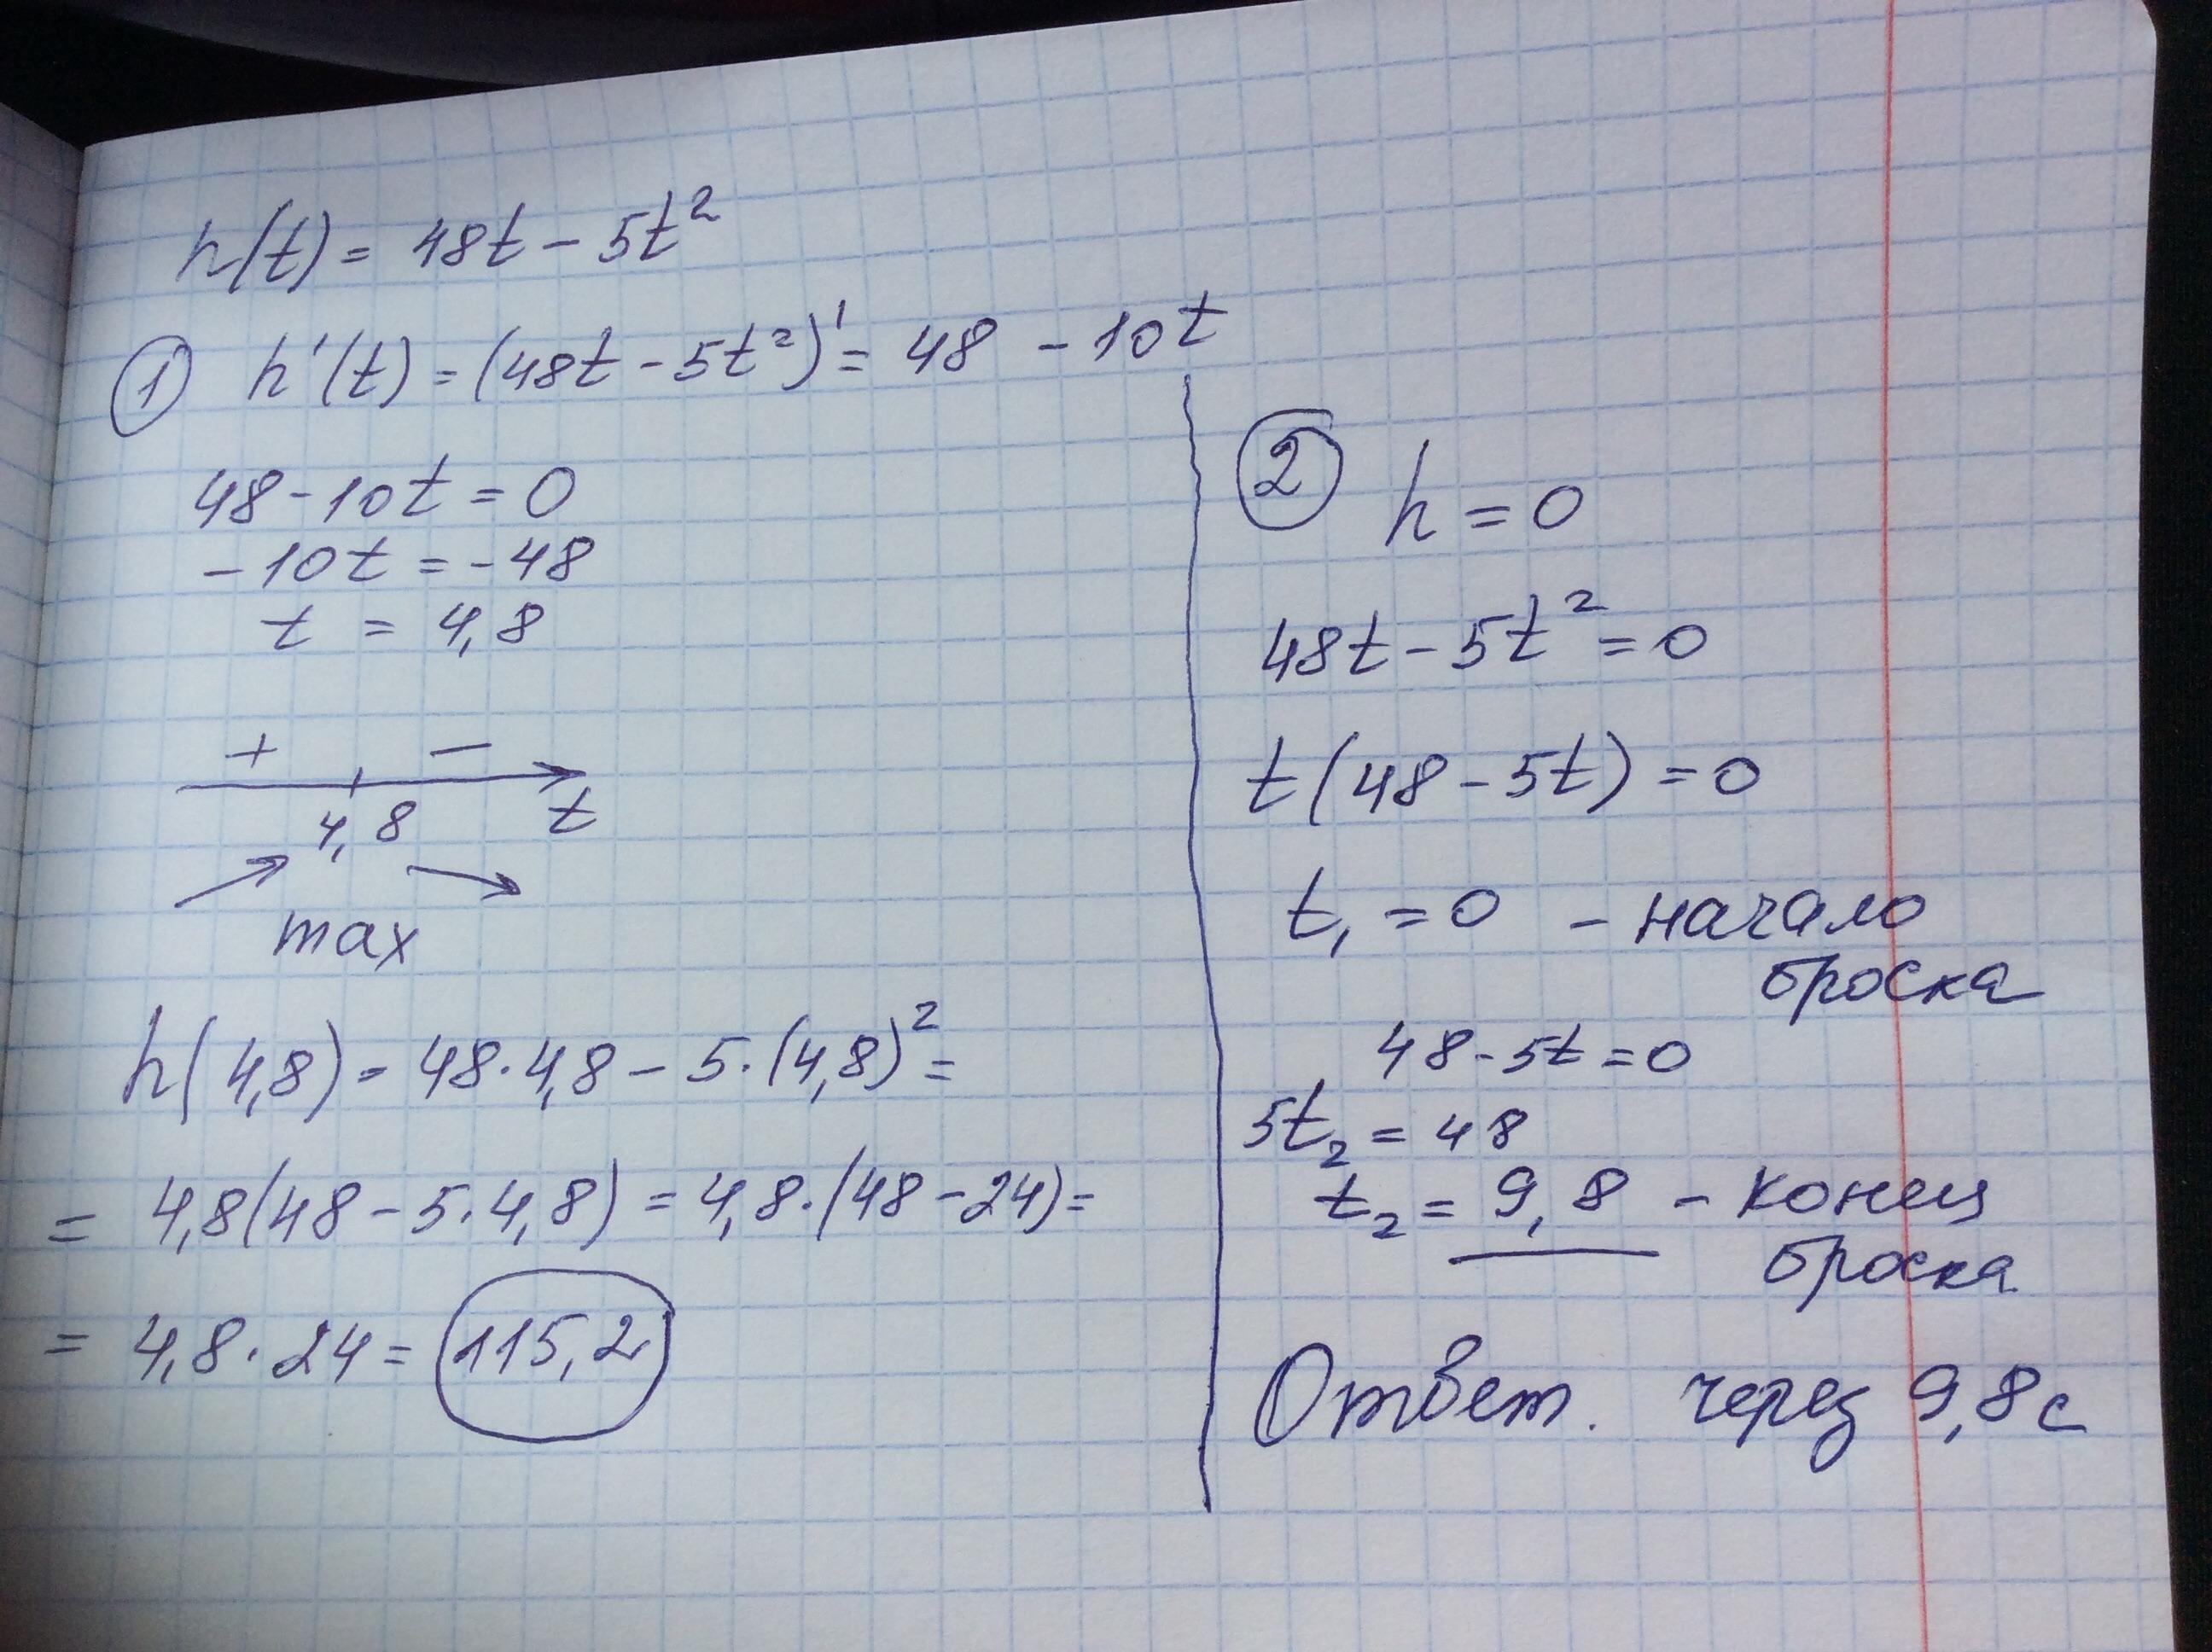 h(t) = 48t - 5t²
① h'(t) = (48t - 5t²)' = 48 - 10t
48 - 10t = 0
-10t = -48
t = 4,8
+ −
4,8 t
max
h(4,8) = 48·4,8 - 5·(4,8)² =
= 4,8(48 - 5·4,8) = 4,8·(48 - 24) =
= 4,8·24 = 115,2
② h = 0
48t - 5t² = 0
t(48 - 5t) = 0
t₁ = 0 - начало
броска
48 - 5t = 0
5t₂ = 48
t₂ = 9,8 - конец
броска
Ответ. через 9,8 с